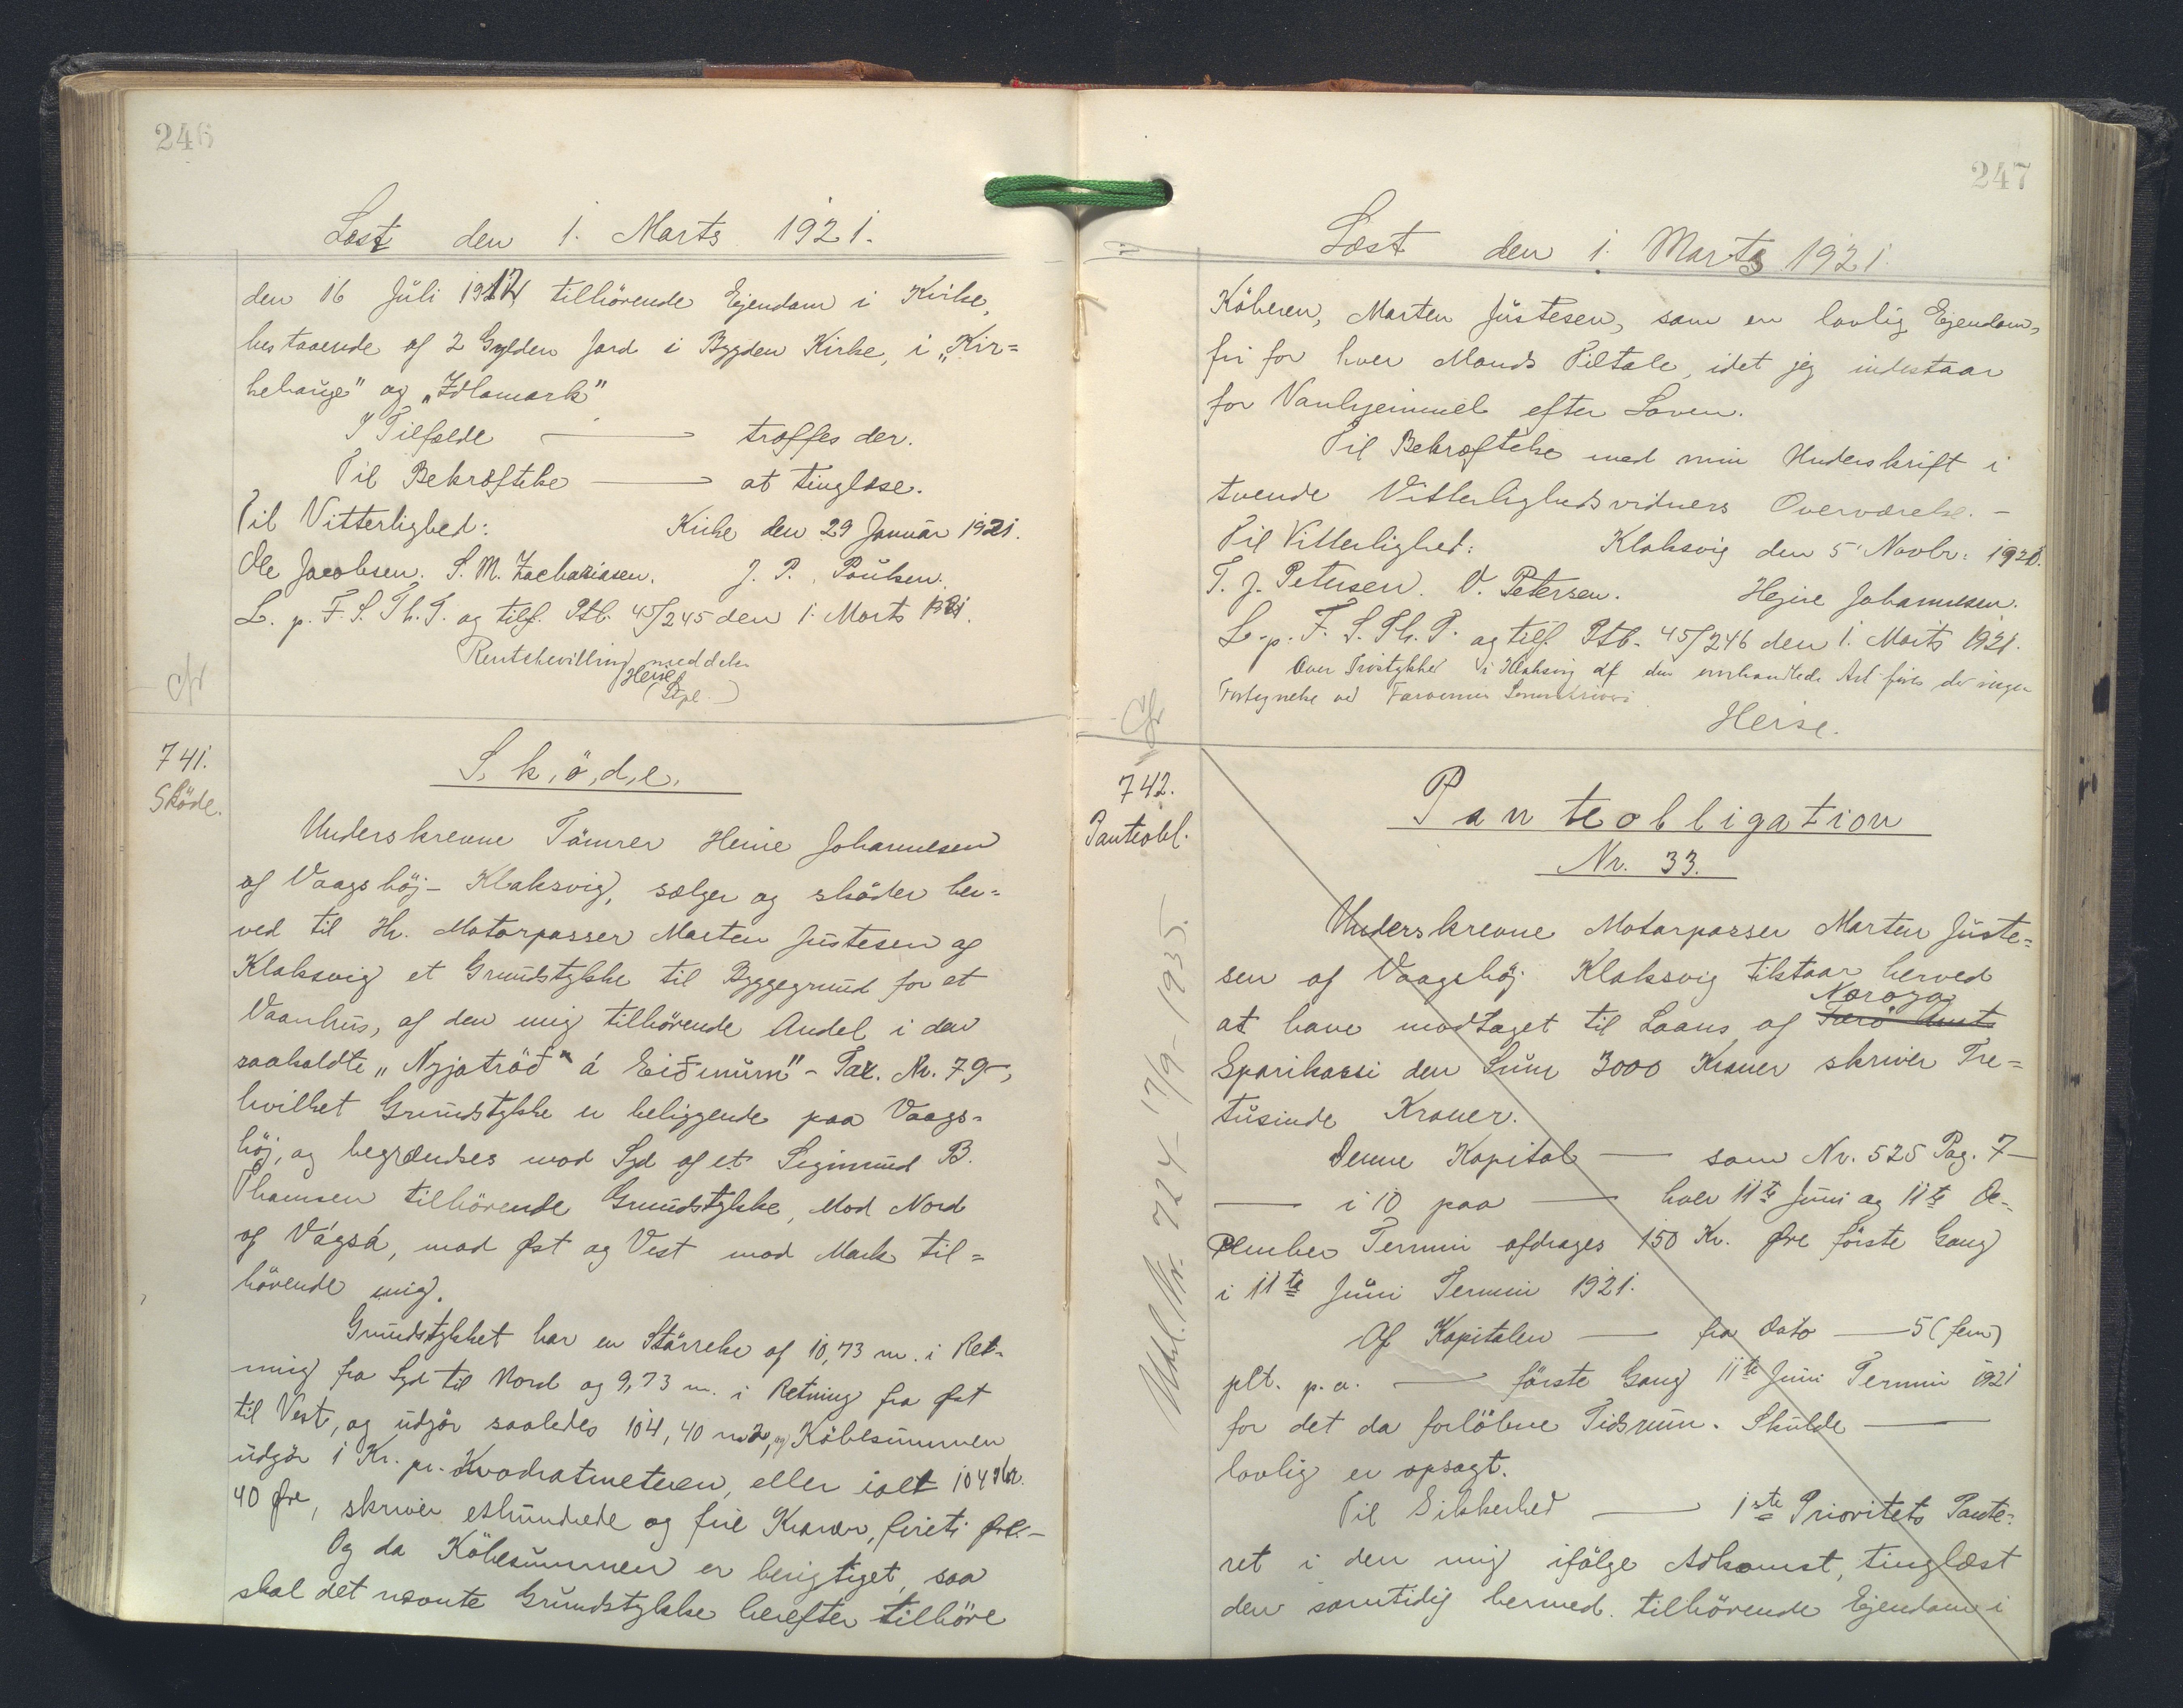 246
Læst den 1. Marts 1921.
den 16 Juli 1912 tilhörende Ejendom i Kirke,
bestaaende af 2 Gylden Jord i Bygden Kirke, i „Kir=
kehauge" og „Idlamark"
I Tilfælde — træffes der.
Til Bekræftelse — at tinglæse.
Til Vitterlighed: Kirke den 29 Januar 1921.
Ole Jacobsen. S. M. Zachariasen. J. P. Poulsen.
L. p. F. S. Th. T. og tilf. Ptb. 45/245 den 1. Marts 1921.
meddeles
Heise
cfr
741.
Sköde.
S,k,ö,d,e,
Underskrevne Tömrer Heine Johannesen
af Vaagshöj - Klaksvig, sælger og sköder her=
ved til Hr. Motorpasser Marten Justesen af
Klaksvig et Grundstykke til Byggegrund for et
Vaanhus, af den mig tilhörende Andel i den
saakaldte „Nyjatröð á Eiðinum" - Tax. Nr. 79,
hvilket Grundstykke er beliggende paa Vaags=
höj, og begrændses mod Syd af et Sigimund B.
Thomsen tilhörende Grundstykke, Mod Nord
af Vágsá, mod Øst og Vest mod Mark til=
hörende mig.
Grundstykket har en Störrelse af 10,73 m. i Ret-
ning fra Syd til Nord og 9,73 m. i Retning fra Øst
til Vest, og udgör saaledes 104,40 m2, og Köbesummen
udgör 1 Kr. pr. Kvadratmeteren, eller ialt 104 Kr.
40 Øre, skriver ethundrede og fire Kroner, fireti Øre. -
Og da Köbesummen er berigtiget, saa
skal det nævnte Grundstykke herefter tilhöre
247
Læst den 1. Marts 1921.
Köberen, Marten Justesen, som en lovlig Ejendom,
fri for hver Mands Tiltale, idet jeg indestaar
for Vanhjemmel efter Loven.
Til Bekræftelse med min Underskrift i
tvende Vitterlighedsvidners Overværelse. -
Til Vitterlighed: Klaksvig den 5 Novbr. 1920.
T. J. Petersen. V. Petersen. Hejne Johannesen.
L. p. F. S. Th. T. og tilf. Ptb. 45/246 den 1. Marts 1921.
Over i Klaksvig af den omhandlede Art föres der ingen
Fortegnelse ved Færøernes
Heise.
Cfr
742.
Panteobl.
Udsl. Nr. 724 - 17/9 - 1935.
Panteobligation
Nr. 33.
Underskrevne Motorpasser Marten Juste=
sen af Vaagshöj Klaksvig tilstaar herved
Noroya
at have modtaget til Laans af Færö Amts
Sparikassi den Sum 3000 Kroner skriver Tre=
tusinde Kroner.
Denne Kapital — som Nr. 525 Pag. 7 —
— i 10 paa — hver 11te Juni og 11te De-
cember Termin afdrages 150 Kr. Øre förste Gang
i 11te Juni Termin 1921.
Af Kapitalen — fra Dato — 5 (fem)
pCt. p. a. — förste Gang 11te Juni Termin 1921
for det da forlöbne Tidsrum. Skulde —
lovlig er opsagt.
Til Sikkerhed — 1ste Prioritets Pante-
ret i den mig ifölge Adkomst, tinglæst
den samtidig hermed. tilhörende Ejendom i